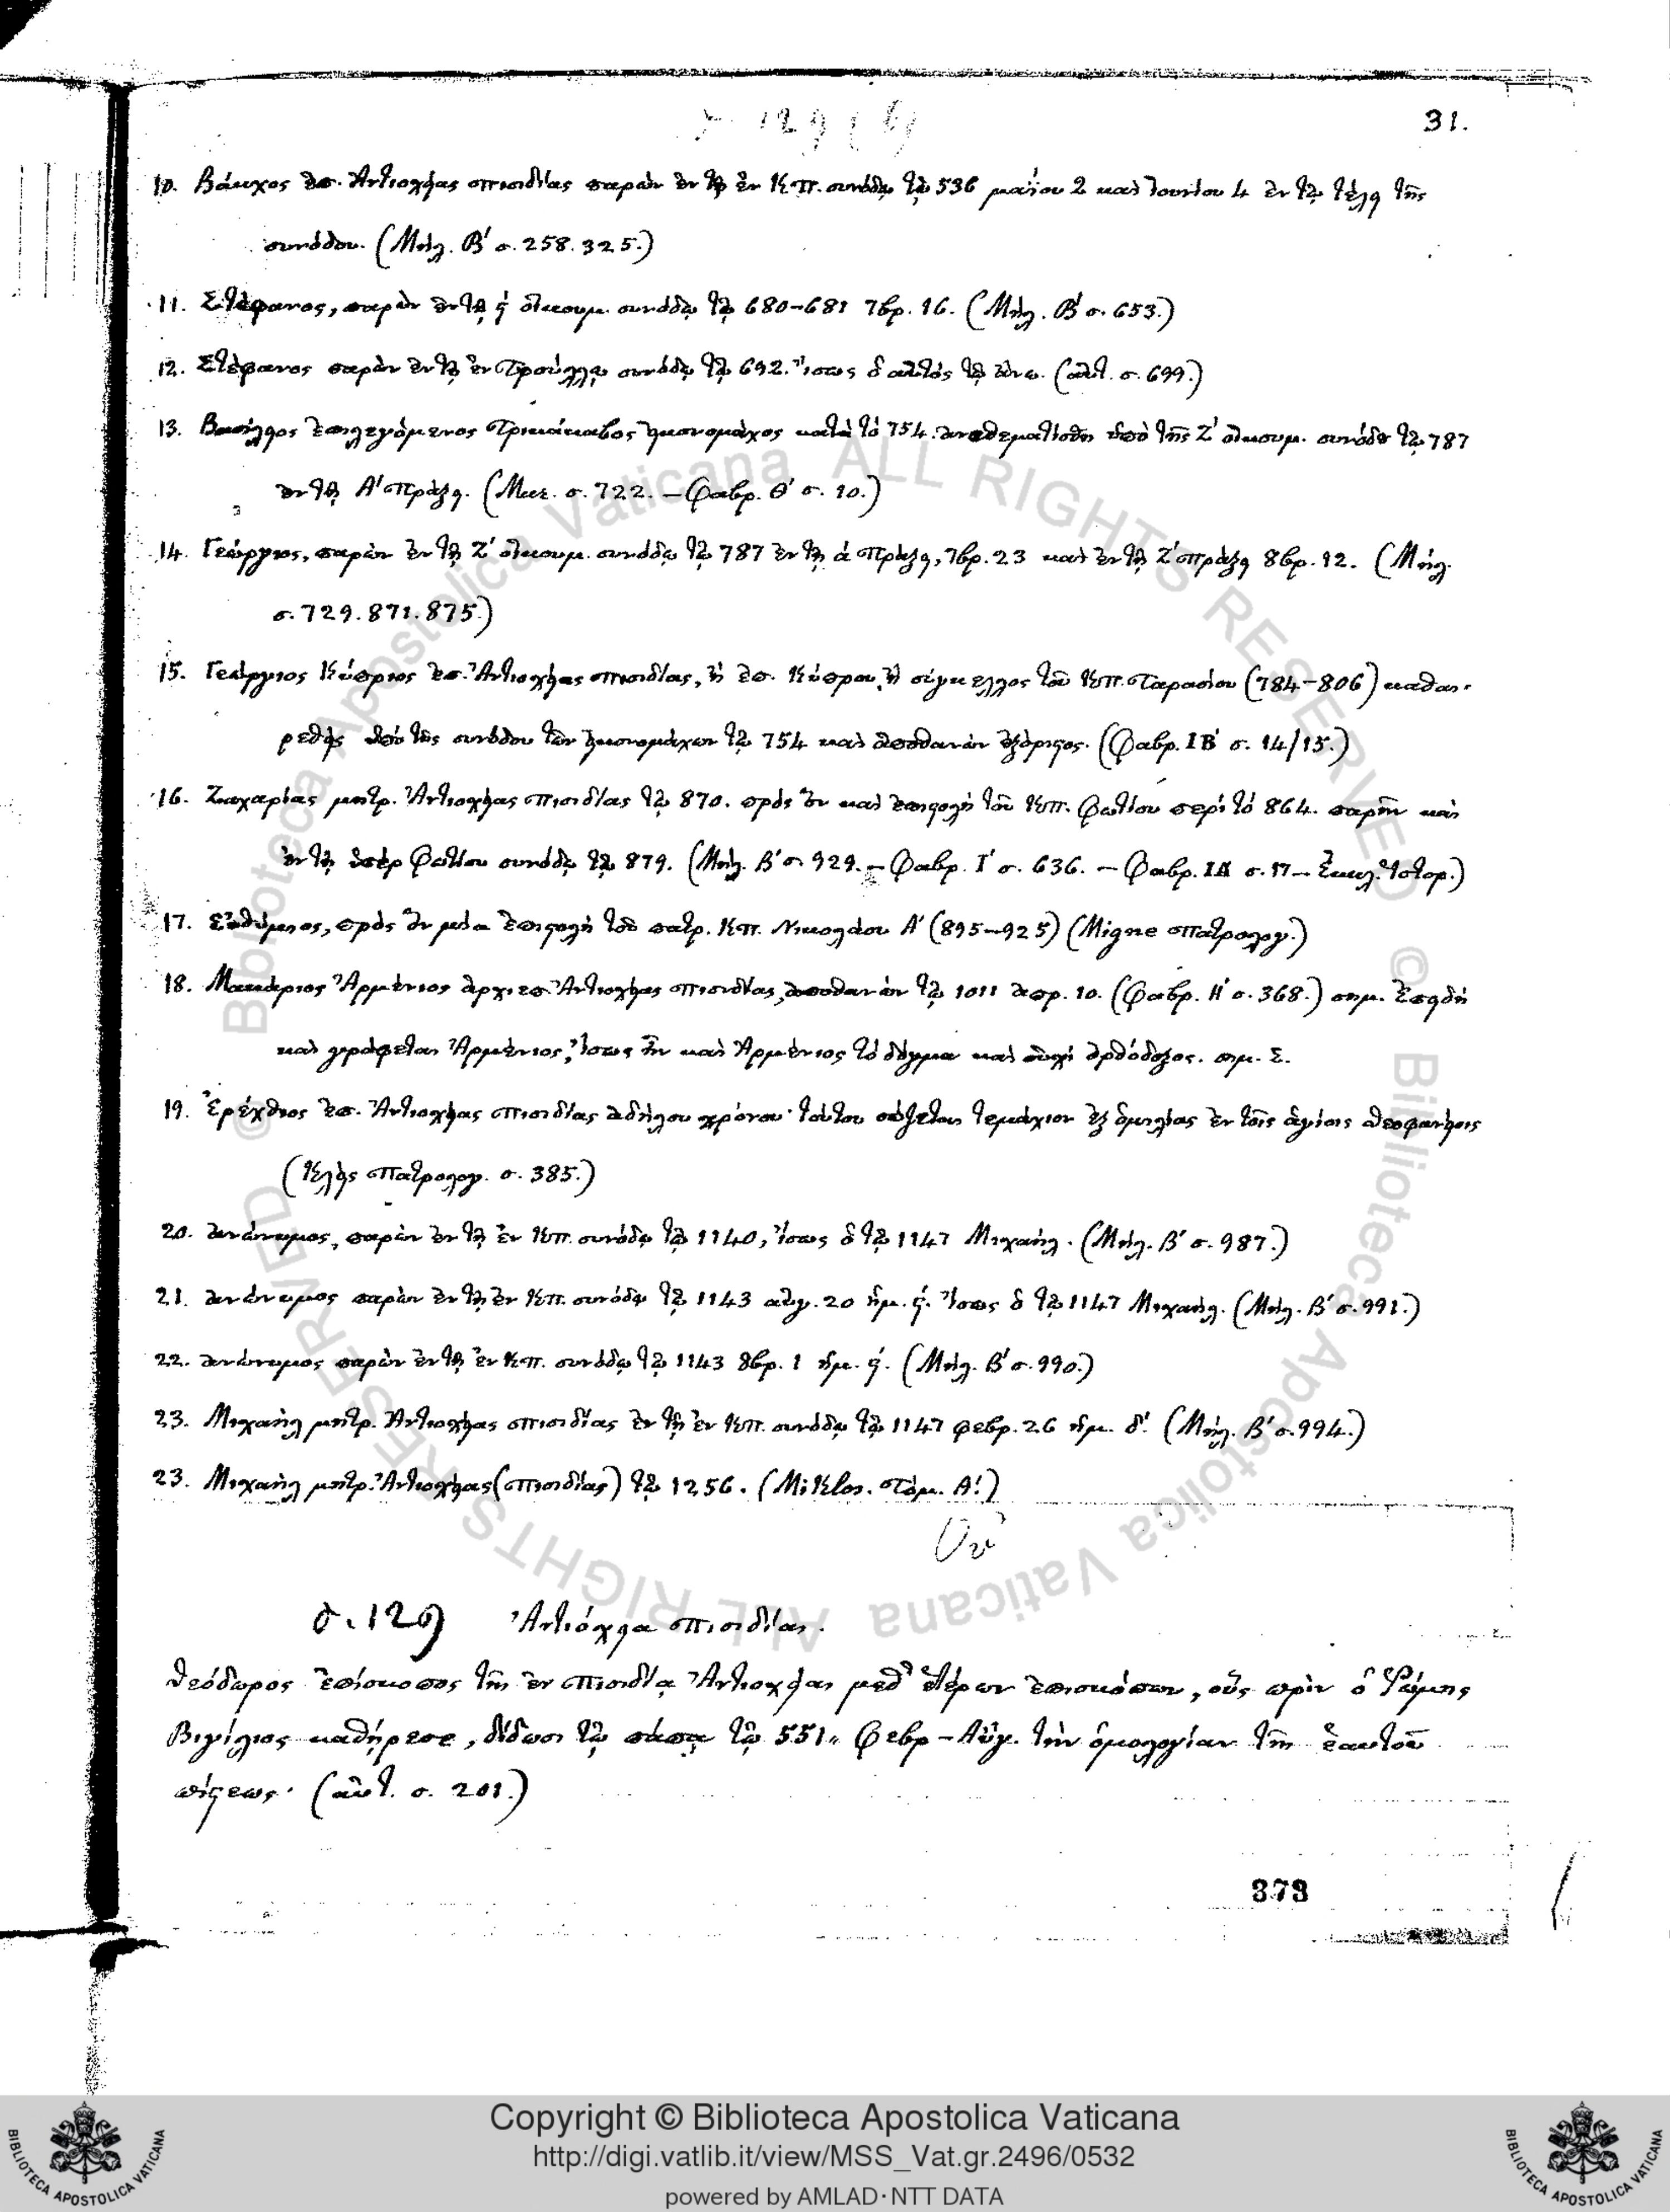 σ. 129 (b)
31.
10. Βάκχος ἐπ. Ἀντιοχείας Πισιδίας παρὼν ἐν τῇ ἐν Κπ. συνόδῳ τῷ 536 μαΐου 2 καὶ Ἰουνίου 4 ἐν τῷ τέλει τῆς
συνόδου. (Μηλ. Β′ σ. 258. 325.)
11. Στέφανος, παρὼν ἐν τῇ ϛ′ οἰκουμ. συνόδῳ τῷ 680-681 7βρ. 16. (Μηλ. Β′ σ. 653.)
12. Στέφανος παρὼν ἐν τῇ ἐν Τρούλλῳ συνόδῳ τῷ 692. ἴσως ὁ αὐτὸς τῷ ἄνω. (αὐτ. σ. 699.)
13. Βασίλειος ἐπιλεγόμενος Τρικάκαβος εἰκονομάχος κατὰ τὸ 754. ἀνεθεματίσθη ὑπὸ τῆς Ζ′ οἰκουμ. συνόδου τῷ 787
ἐν τῇ Α′ πράξει. (Μελ. σ. 722. – Φαβρ. Θ′ σ. 10.)
14. Γεώργιος, παρὼν ἐν τῇ Ζ′ οἰκουμ. συνόδῳ τῷ 787 ἐν τῇ ά πράξει, 7βρ. 23 καὶ ἐν τῇ Ζ′ πράξει 8βρ. 12. (Μήλ.
σ. 729. 871. 875.)
15. Γεώργιος Κύπριος ἐπ. Ἀντιοχείας Πισιδίας, ἢ ἐπ. Κύπρου, ἢ σύγκελλος τοῦ Κπ. Ταρασίου (784-806) καθαι-
ρεθεὶς ὑπὸ τῆς συνόδου τῶν εἰκονομάχων τῷ 754 καὶ ἀποθανὼν ἐξόριστος. (Φαβρ. ΙΒ′ σ. 14/15.)
16. Ζαχαρίας μητρ. Ἀντιοχείας Πισιδίας τῷ 870. πρὸς ὃν καὶ ἐπιστολὴ τοῦ Κπ. Φωτίου περὶ τὸ 864. παρῆν καὶ
ἐν τῇ ὑπὲρ Φωτίου συνόδῳ τῷ 879. (Μηλ. Β′ σ. 929. – Φαβρ. Ι′ σ. 636. – Φαβρ. ΙΑ σ. 17 – Ἐκκλ. Ἱστορ.)
17. Εὐθύμιος, πρὸς ὃν μία ἐπιστολὴ τοῦ πατρ. Κπ. Νικολάου Α′ (895-925) (Migne Πατρολογ.)
18. Μακάριος Ἀρμένιος ἀρχιεπ. Ἀντιοχείας Πισιδίας, ἀποθανὼν τῷ 1011 ἀπρ. 10. (Φαβρ. Η′ σ. 368.) σημ. Ἐπειδὴ
καὶ γράφεται Ἀρμένιος, ἴσως ἦν καὶ Ἀρμένιος τὸ δόγμα καὶ οὐχὶ ὀρθόδοξος. σημ. Σ.
19. Ἐρέχθιος ἐπ. Ἀντιοχείας Πισιδίας ἀδήλου χρόνου· τούτου σώζεται τεμάχιον ἐξ ὁμιλίας ἐν τοῖς ἁγίοις Θεοφανείοις
(Κλεὶς Πατρολογ. σ. 385.)
20. ἀνώνυμος, παρὼν ἐν τῇ ἐν Κπ. συνόδῳ τῷ 1140, ἴσως ὁ τῷ 1147 Μιχαήλ. (Μηλ. Β′ σ. 987.)
21. ἀνώνυμος παρὼν ἐν τῇ ἐν Κπ. συνόδῳ τῷ 1143 αὐγ. 20 ἡμ. ϛ′. Ἴσως ὁ τῷ 1147 Μιχαήλ. (Μηλ. Β′ σ. 991.)
22. ἀνώνυμος παρὼν ἐν τῇ ἐν Κπ. συνόδῳ τῷ 1143 8βρ. 1 ἡμ. ϛ′. (Μηλ. Β′ σ. 990.)
23. Μιχαὴλ μητρ. Ἀντιοχείας Πισιδίας ἐν τῇ ἐν Κπ. συνόδῳ τῷ 1147 φεβρ. 26 ἡμ. δ′. (Μήλ. Β′ σ. 994.)
23. Μιχαὴλ μητρ. Ἀντιοχείας (Πισιδίας) τῷ 1256. (Miklos. Τόμ. Α′.)
σ. 129 Ἀντιόχεια Πισιδίας.
Θεόδωρος ἐπίσκοπος τῆς ἐν Πισιδίᾳ Ἀντιοχείας μεθ' ἑτέρων ἐπισκόπων, οὓς πρὶν ὁ Ῥώμης
Βιγίλιος καθήρεσε, δίδωσι τῷ πάπᾳ τῷ 551 Φεβρ – Αὔγ. τὴν ὁμολογίαν τῆς ἑαυτοῦ
πίστεως. (αὐτ. σ. 201.)
373
Copyright © Biblioteca Apostolica Vaticana
http://digi.vatlib.it/view/MSS_Vat.gr.2496/0532
powered by AMLAD·NTT DATA
BIBLIOTECA APOSTOLICA VATICANA
BIBLIOTECA APOSTOLICA VATICANA
© Biblioteca Apostolica Vaticana ALL RIGHTS RESERVED
© Biblioteca Apostolica Vaticana ALL RIGHTS RESERVED